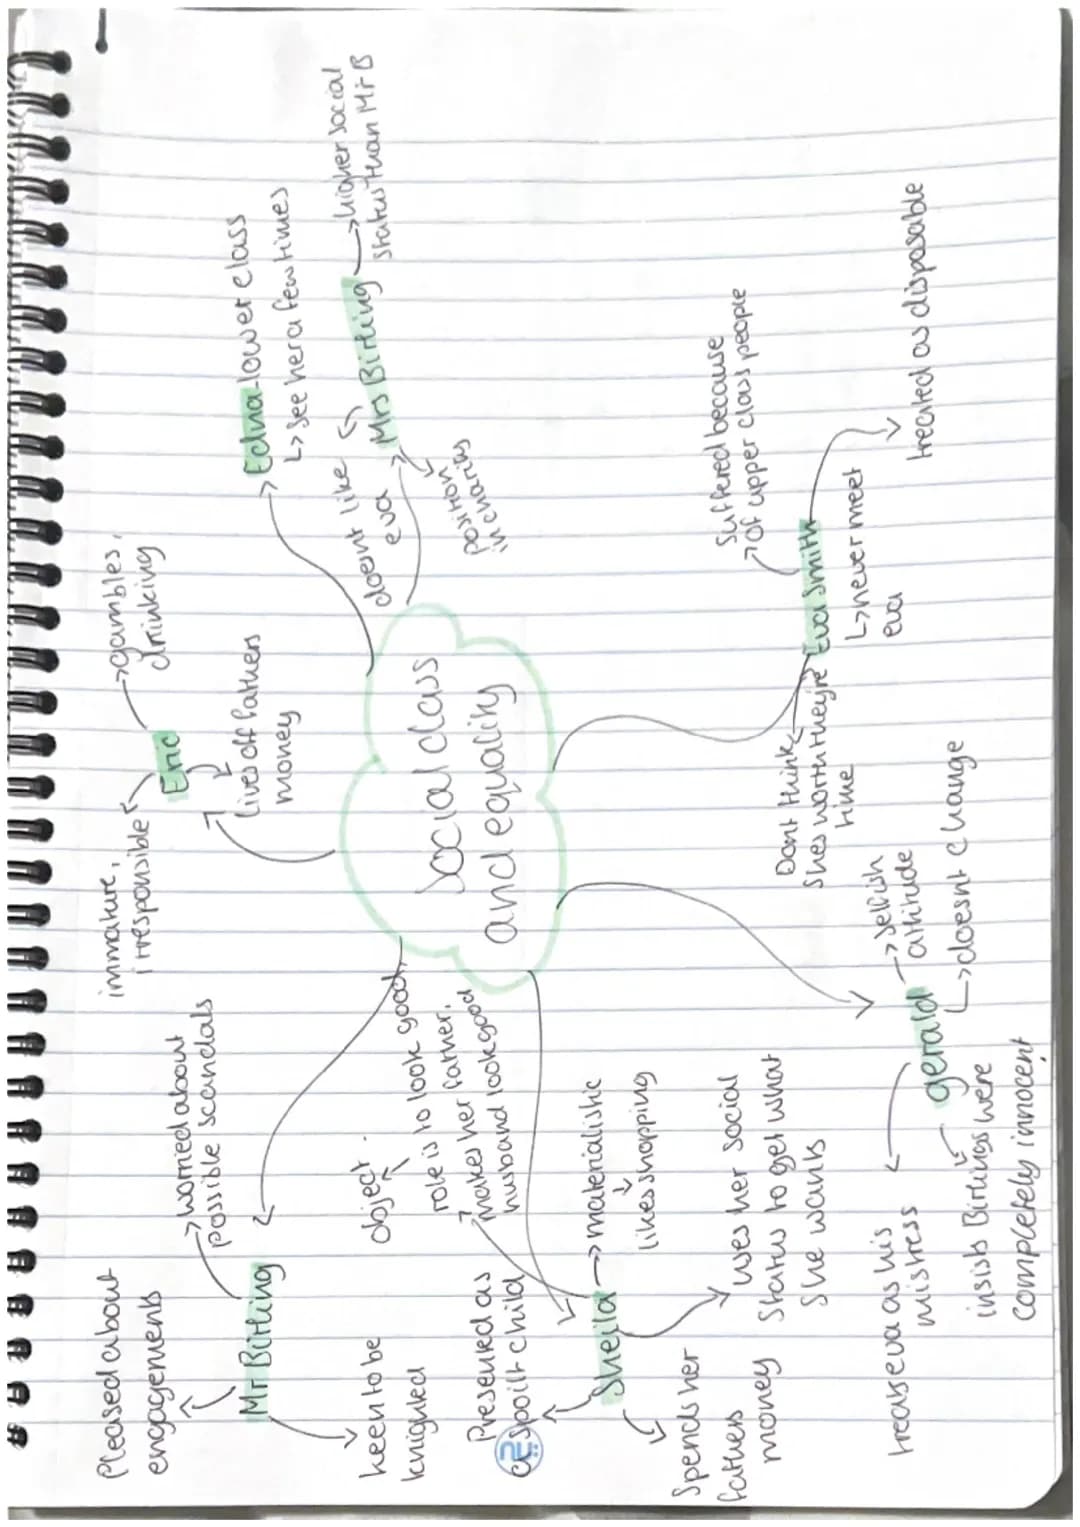 Social class
and equality
Mr Birling
Pleased about
engagements
worried about
possible scandals
keen to be
knighted
Eric
immature,
irresponsible
gambles,
drinking
lives off fathers
money
Edna - lower class
↳ see her a few times
Mrs Birling
higher social
status than Mr B
doesnt like
eva
position
in charity
Eva Smith
Suffered because
of upper class people
treated as disposable
↳ never meet
eva
Dont think
shes worth they're
time
gerald
selfish
attitude
↳ doesnt change
insists Birlings were
completely innocent
treats eva as his
mistress
Sheila
object.
role is to look good,
makes her father,
husband look good
materialistic
likes shopping
uses her social
status to get what
she wants
Spends her
fathers
money
Presented as
a spoilt child